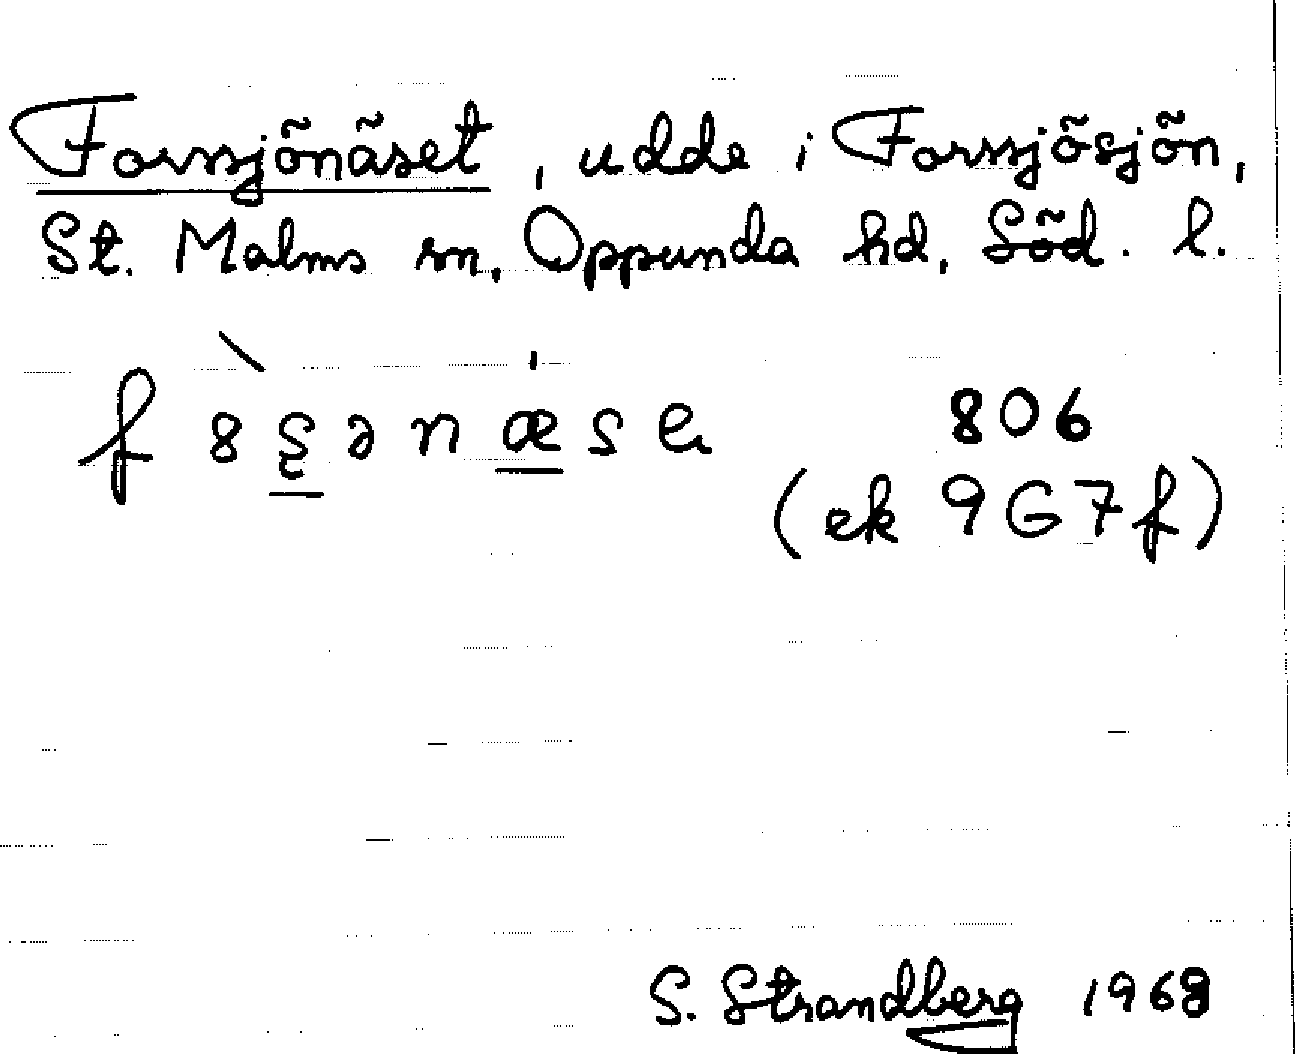 Forssjönäset, udde i Forssjösjön,
St. Malms sn, Oppunda hd, Söd. l.
f 8 s̨ ə n æ s e 806
(ek 9G7f)
S. Strandberg 1968